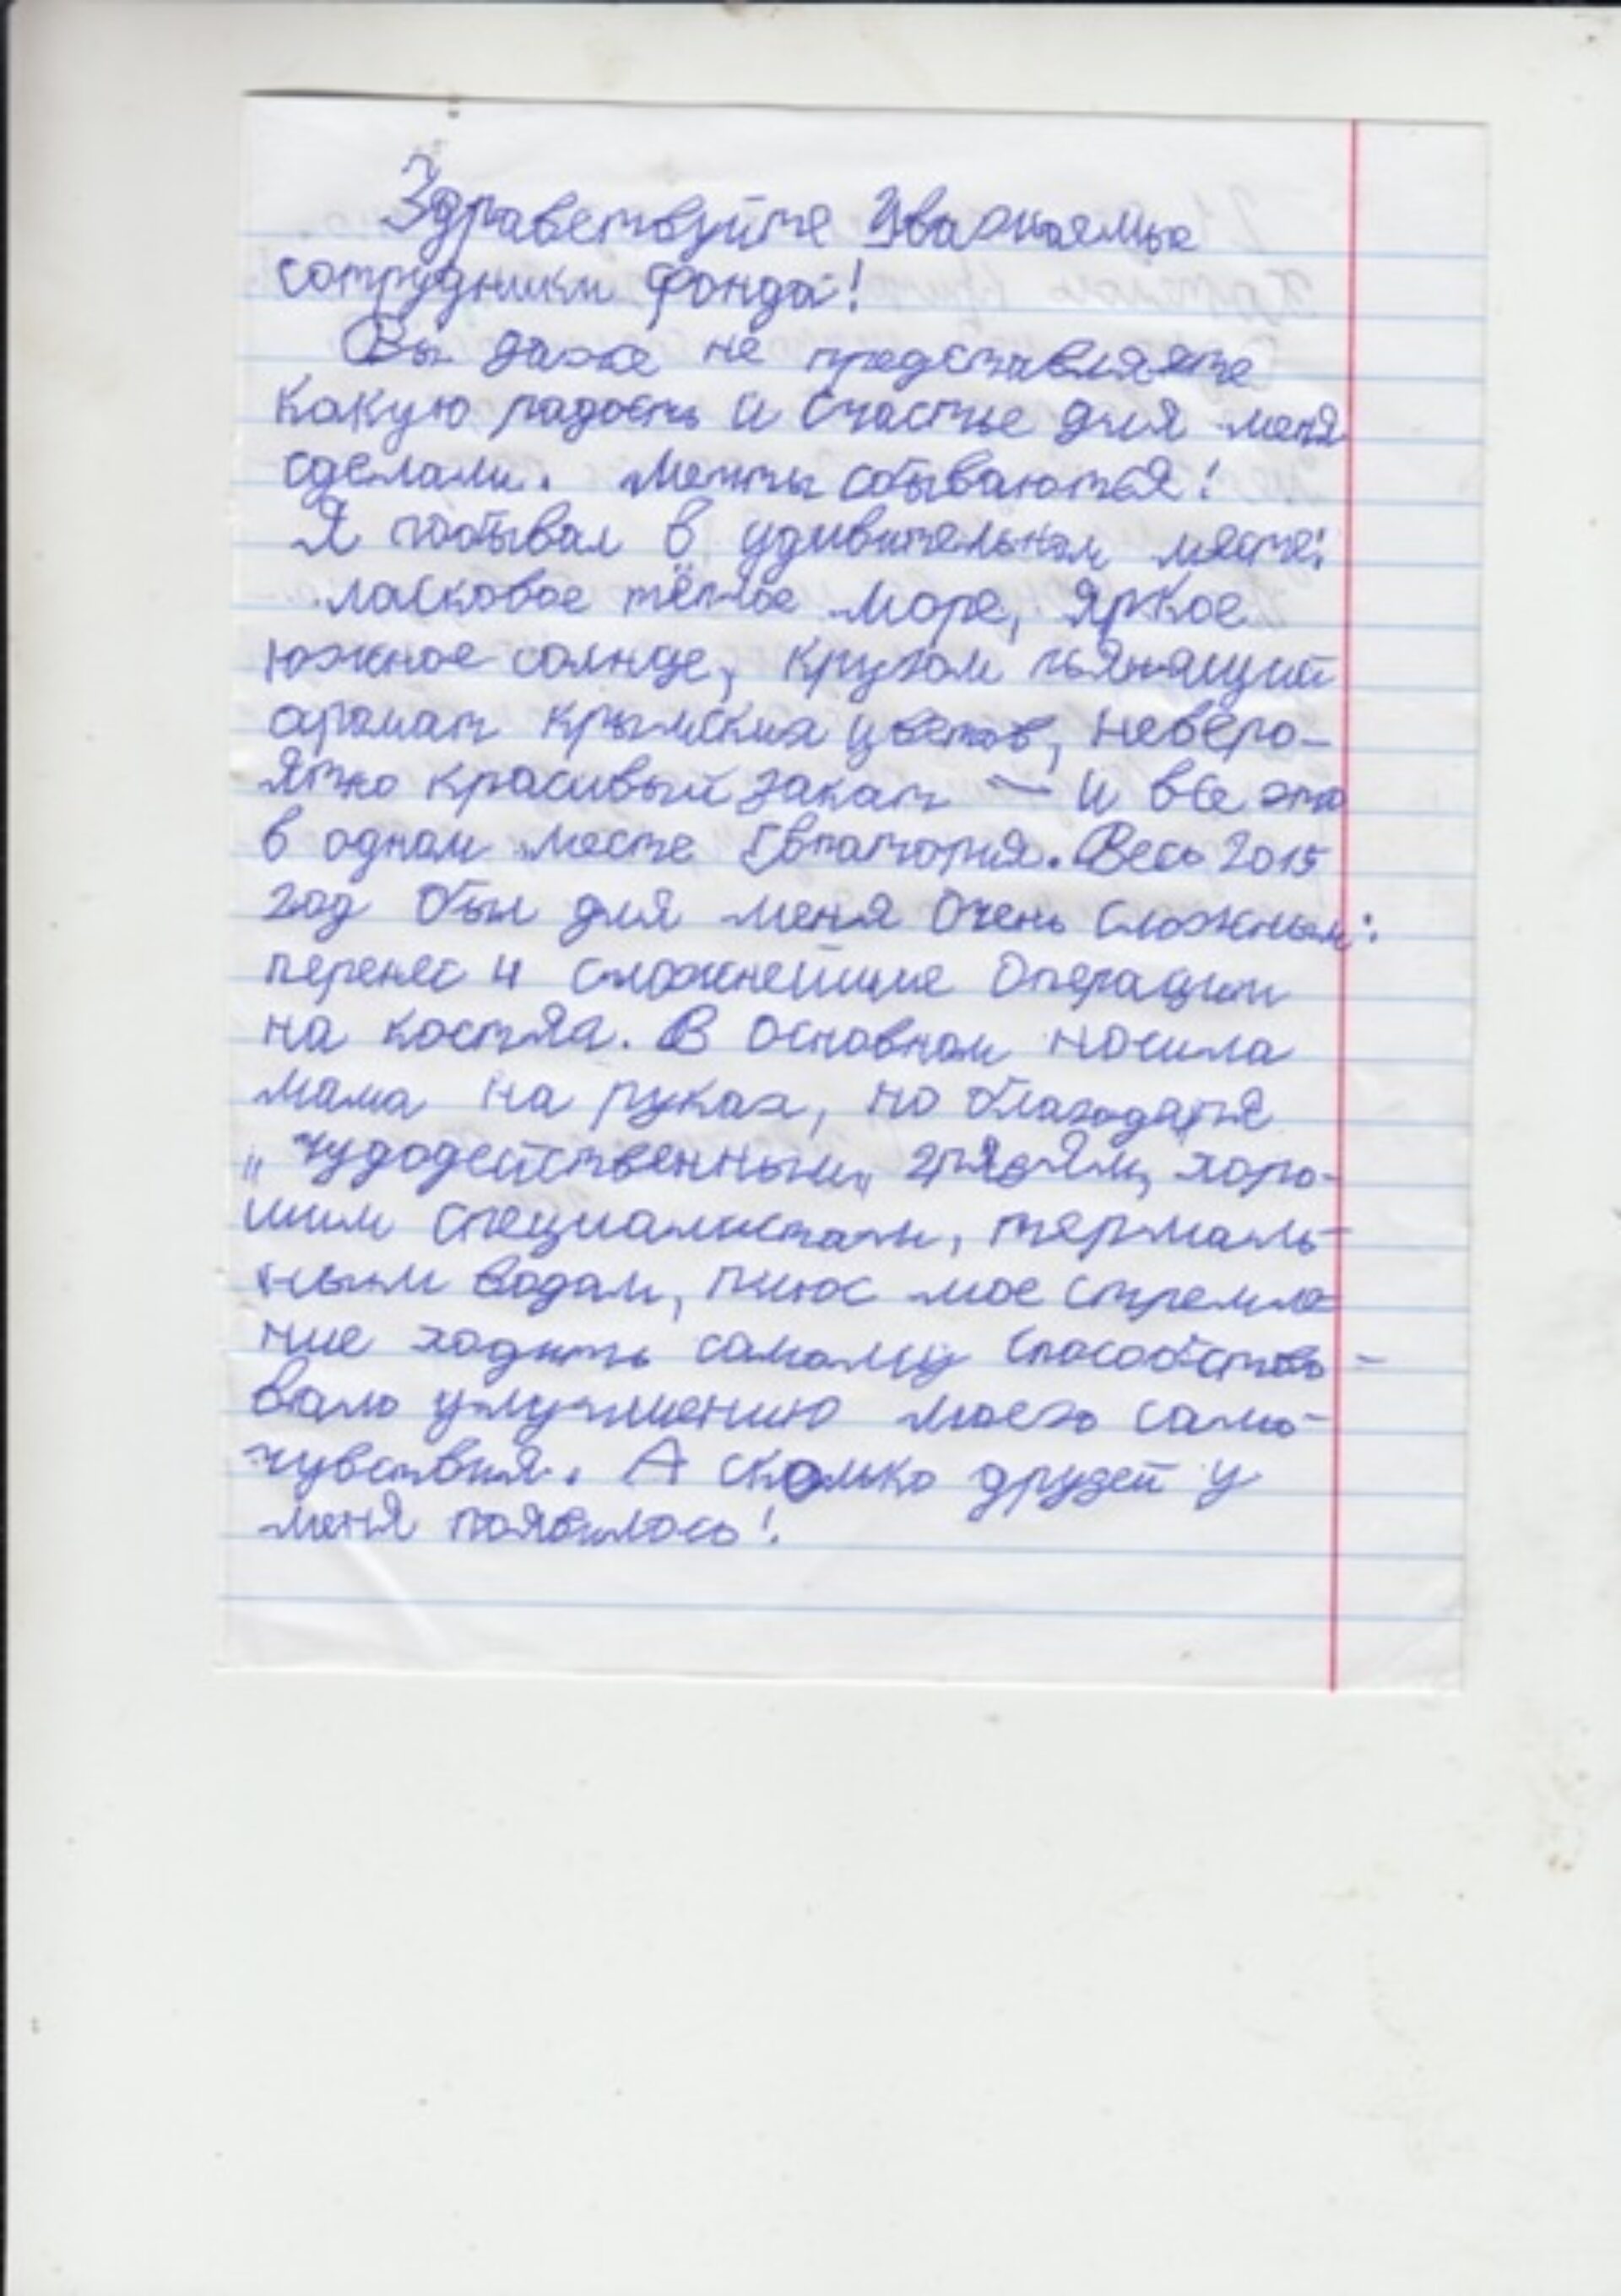 Здравствуйте Уважаемые
сотрудники Фонда!
Вы даже не представляете
какую радость и счастье для меня
сделали. Мечты сбываются!
Я побывал в удивительном месте:
ласковое тёплое море, яркое
южное солнце, кругом пьянящий
аромат крымских цветов, неверо-
ятно красивый закат — и все это
в одном месте Евпатория. Весь 2015
год был для меня очень сложным:
перенес 4 сложнейшие операции
на костях. В основном носила
мама на руках, но благодаря
„чудодейственным„ грязям, хоро-
шим специалистам, термаль-
ным водам, плюс мое стремле-
ние ходить самому способство-
вало улучшению моего само-
чувствия. А сколько друзей у
меня появилось!